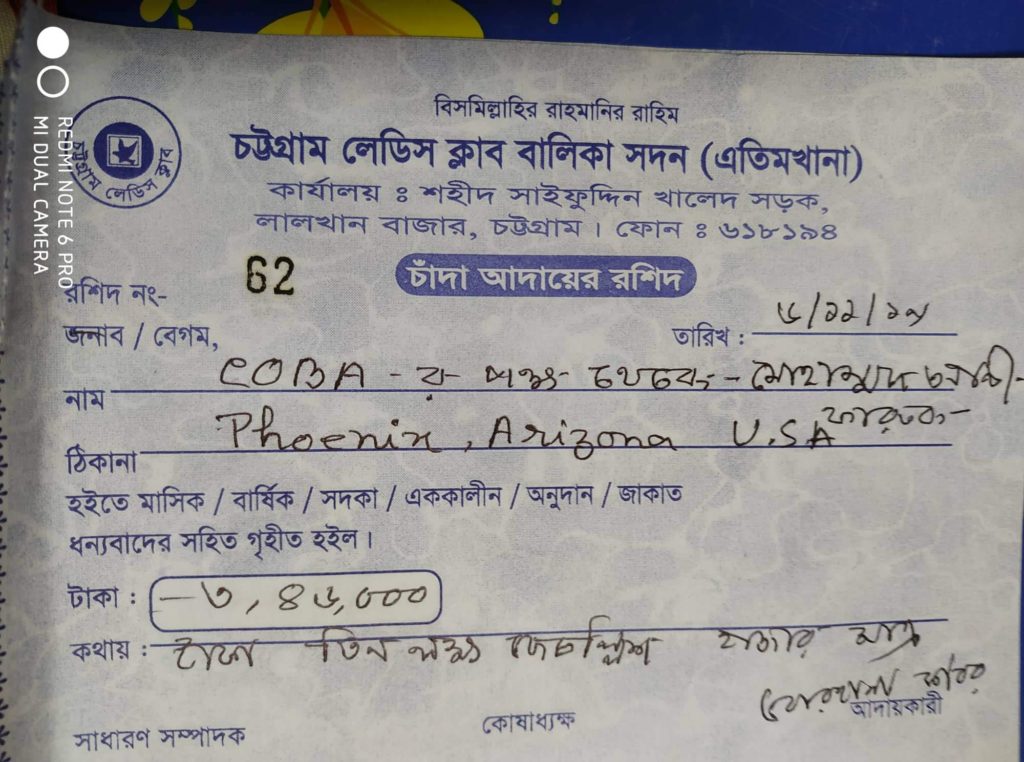 বিসমিল্লাহির রাহমানির রাহিম
চট্টগ্রাম লেডিস ক্লাব বালিকা সদন (এতিমখানা)
কার্যালয় ঃ শহীদ সাইফুদ্দিন খালেদ সড়ক,
লালখান বাজার, চট্টগ্রাম । ফোন ঃ ৬১৮১৯৪
চট্টগ্রাম লেডিস ক্লাব
REDMI NOTE 6 PRO
MI DUAL CAMERA
চাঁদা আদায়ের রশিদ
রশিদ নং- 62
জনাব / বেগম,
তারিখ :
নাম COBA - র পক্ষ থেকে - মোহাম্মদ
ফারুক -
ঠিকানা Phoenix, Arizona U.S.A
হইতে মাসিক / বার্ষিক / সদকা / এককালীন / অনুদান / জাকাত
ধন্যবাদের সহিত গৃহীত হইল ।
টাকা : – ৩,৪৬,০০০
কথায় : টাকা তিন লক্ষ হাজার মাত্র
আদায়কারী
কোষাধ্যক্ষ
সাধারণ সম্পাদক